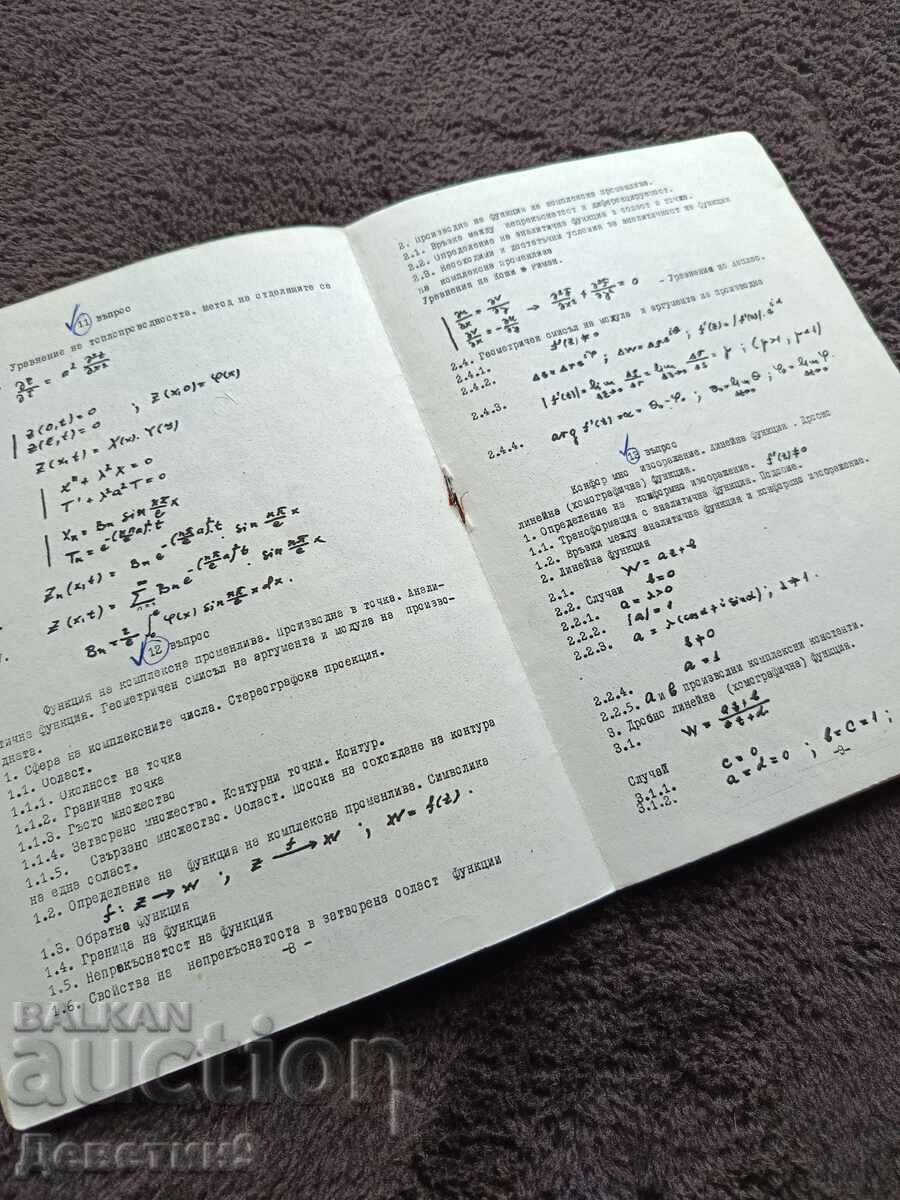 11 въпрос
Уравнение на топлопроводността. Метод на отделящите се
∂z/∂t = a² ∂²z/∂x²
z(0,t)=0
z(ℓ,t)=0 ; z(x,0)=φ(x)
z(x,t) = X(x).
X" + λ²X = 0
T' + λ²a²T = 0
Xn = Bn sin nπ/ℓ x
Tn = e^-(nπ/ℓ a)² t
Zn(x,t) = Bn e^-(nπ/ℓ a)² t . sin nπ/ℓ x
z(x,t) = ∑ n=1 ∞ Bn e^-(nπ/ℓ a)² t . sin nπ/ℓ x
Bn = 2/ℓ ∫ 0 ℓ φ(x) sin nπ/ℓ x dx.
12 въпрос
Функция на комплексна променлива. Производна в точка. Анали-
тична функция. Геометричен смисъл на аргумента и модула на произво-
дната.
1. Сфера на комплексните числа. Стереографска проекция.
1.1. Област.
1.1.1. Околност на точка
1.1.2. Гранична точка
1.1.3. Гъсто множество
1.1.4. Затворено множество. Контурни точки. Контур.
1.1.5. Свързано множество. Област. Посока на обхождане на контура
на една област.
1.2. Определение на функция на комплексна променлива. Символика
f: z → w ; z →f w ; w = f(z).
1.3. Обратна функция
1.4. Граница на функция
1.5. Непрекъснатост на функция
1.6. Свойства на непрекъснатоста в затворена област функции
-8-
2. Производна на функция на комплексна променлива.
2.1. Връзка между непрекъснатост и диференцируемост.
2.2. Определение на аналитична функция в област и точка.
2.3. Необходими и достатъчни условия за аналитичност на функция
на комплексна променлива
Уравнения на Коши и Риман.
∂u/∂x = ∂v/∂y
∂v/∂x = -∂u/∂y → + = 0 - Уравнения на Лаплас.
2.4. Геометричен смисъл на модула и аргумента на производна
2.4.1. f'(z) ≠ 0
2.4.2. Δz = Δr e^iφ ; Δw = Δρ e^iθ ; f'(z) = |f'(z)|.e^iα
2.4.3. |f'(z)| = lim Δz→0
2.4.4. arg f'(z) = α = θ₀ - φ₀ ; θ₀ = lim θ ; φ₀ = lim φ.
13 въпрос
Конформно изображение. Линейна функция. Дробно
линейна (хомографична) функция.
1. Определение на конформно изображение. f'(z) ≠ 0
1.1. Трансформация с аналитична функция. Подобие.
1.2. Връзки между аналитична функция и конформно изображение.
2. Линейна функция
2.1. w = az + b
2.2. Случаи b = 0
2.2.1. a = λ > 0
2.2.2. |a| = 1
2.2.3. a = λ(cos α + i sin α) ; λ ≠ 1.
b ≠ 0
2.2.4. a = 1
2.2.5. a и b произволни комплексни константи.
3. Дробно линейна (хомографична) функция.
3.1. w = az+b/cz+d
Случай
3.1.1. c = 0
3.1.2. a = d = 0 ; b = c = 1 ;
-9-
BALKAN
auction
Деветин9